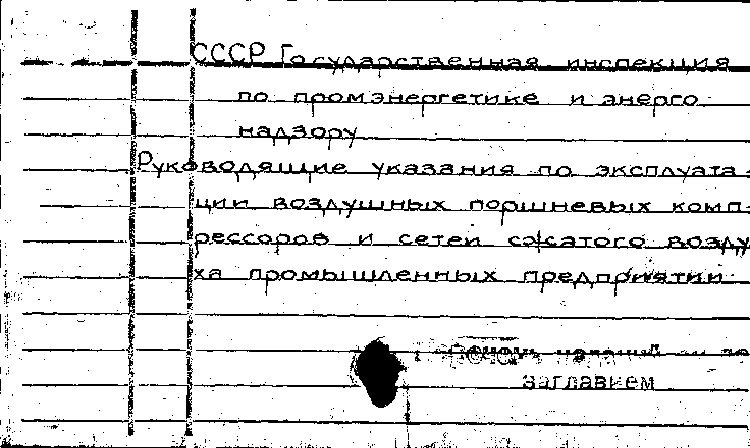 СССР Государственная инспекция
по промэнергетике и энерго
надзору
Руководящие указания по эксплуата-
ции воздушных поршневых комп-
рессоров и сетей сжатого возду
ха промышленных предприятий
заглавием